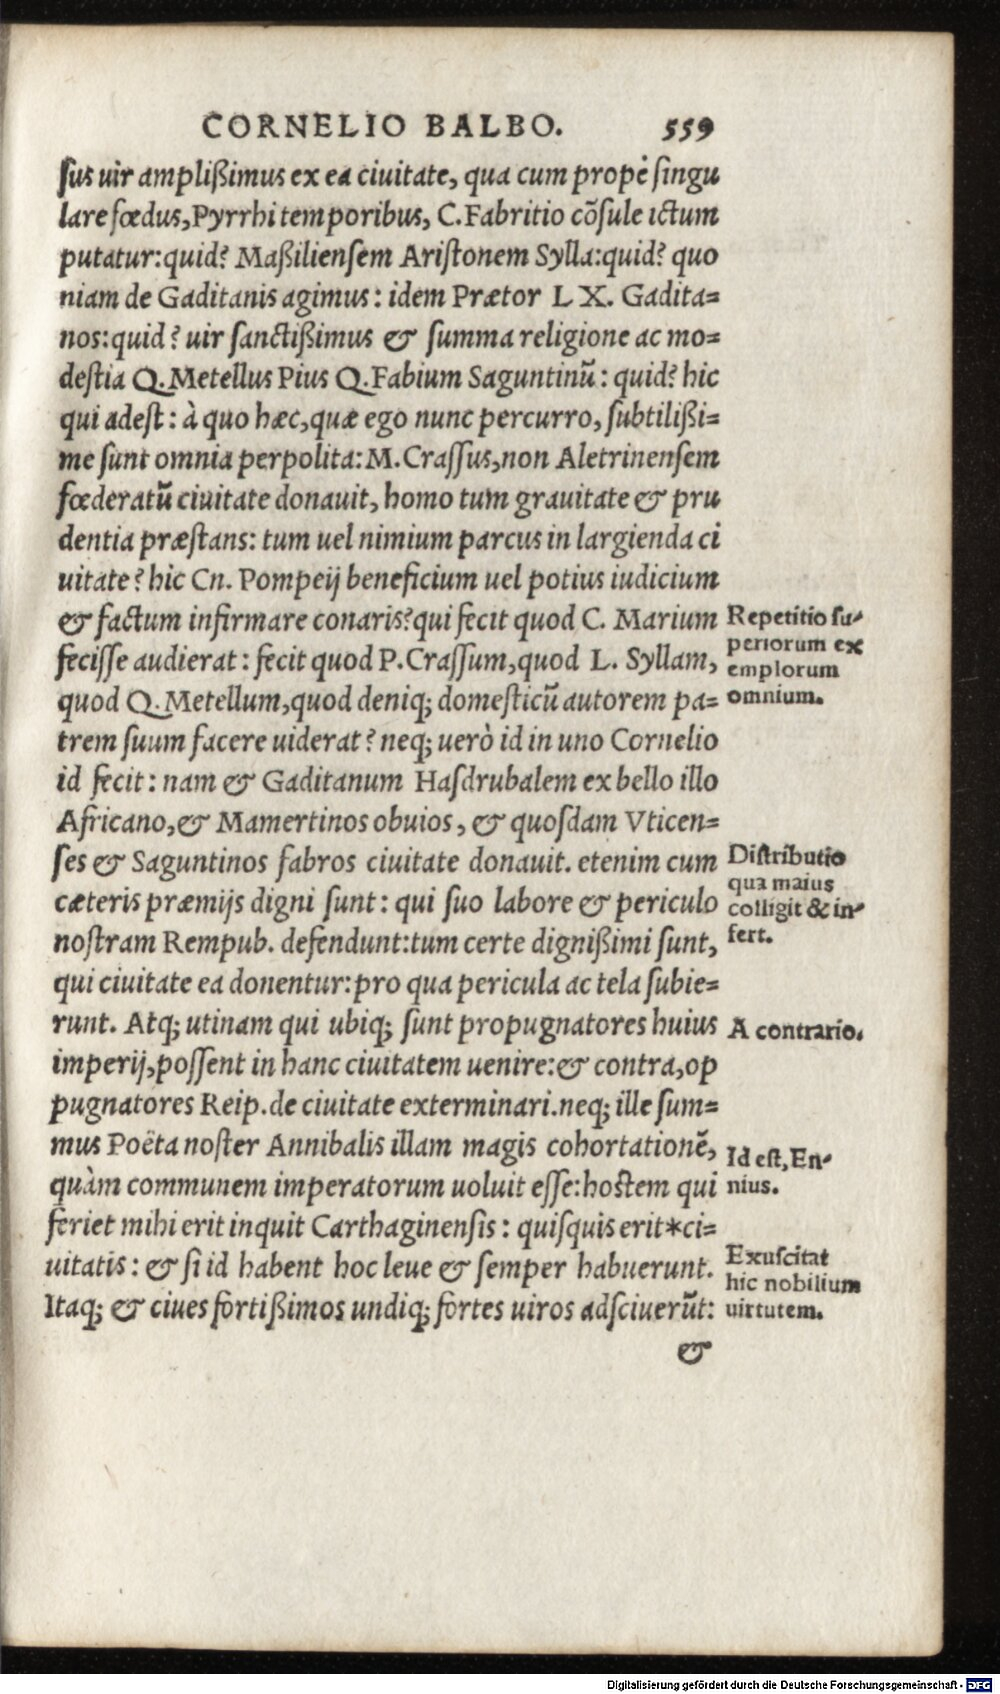 CORNELIO BALBO. 559
ſus uir amplißimus ex ea ciuitate, qua cum propè ſingu
lare fœdus, Pyrrhi temporibus, C. Fabritio cõſule ictum
putatur: quid? Maßilienſem Ariſtonem Sylla: quid? quo
niam de Gaditanis agimus: idem Prætor LX. Gadita=
nos: quid? uir ſanctißimus & summa religione ac mo=
deſtia Q. Metellus Pius Q. Fabium Saguntinũ: quid? hic
qui adeſt: à quo hæc, quæ ego nunc percurro, ſubtilißi=
me ſunt omnia perpolita: M. Craſſus, non Aletrinenſem
fœderatũ ciuitate donauit, homo tum grauitate & pru
dentia præſtans: tum uel nimium parcus in largienda ci
uitate? hic Cn. Pompeij beneficium uel potius iudicium
& factum infirmare conaris? qui fecit quod C. Marium
feciſſe audierat: fecit quod P. Craſſum, quod L. Syllam,
quod Q. Metellum, quod deniq; domeſticũ autorem pa=
trem ſuum facere uiderat? neq; uerò id in uno Cornelio
id fecit: nam & Gaditanum Haſdrubalem ex bello illo
Africano, & Mamertinos obuios, & quoſdam Vticen=
ſes & Saguntinos fabros ciuitate donauit. etenim cum
cæteris præmijs digni ſunt: qui ſuo labore & periculo
noſtram Rempub. defendunt: tum certe dignißimi ſunt,
qui ciuitate ea donentur: pro qua pericula ac tela ſubie=
runt. Atq; utinam qui ubiq; ſunt propugnatores huius
imperij, poſſent in hanc ciuitatem uenire: & contra, op
pugnatores Reip. de ciuitate exterminari. neq; ille ſum=
mus Poëta noſter Annibalis illam magis cohortationẽ,
quàm communem imperatorum uoluit eſſe: hoſtem qui
feriet mihi erit inquit Carthaginenſis: quiſquis erit*ci=
uitatis: & ſi id habent hoc leue & ſemper habuerunt.
Itaq; & ciues fortißimos undiq; fortes uiros adſciuerũt:
&
Repetitio ſu-
periorum ex
emplorum
omnium.
Diſtributio
qua maius
colligit & in-
fert.
A contrario.
Id eſt, En-
nius.
Exuſcitat
hic nobilium
uirtutem.
Digitalisierung gefördert durch die Deutsche Forschungsgemeinschaft - DFG